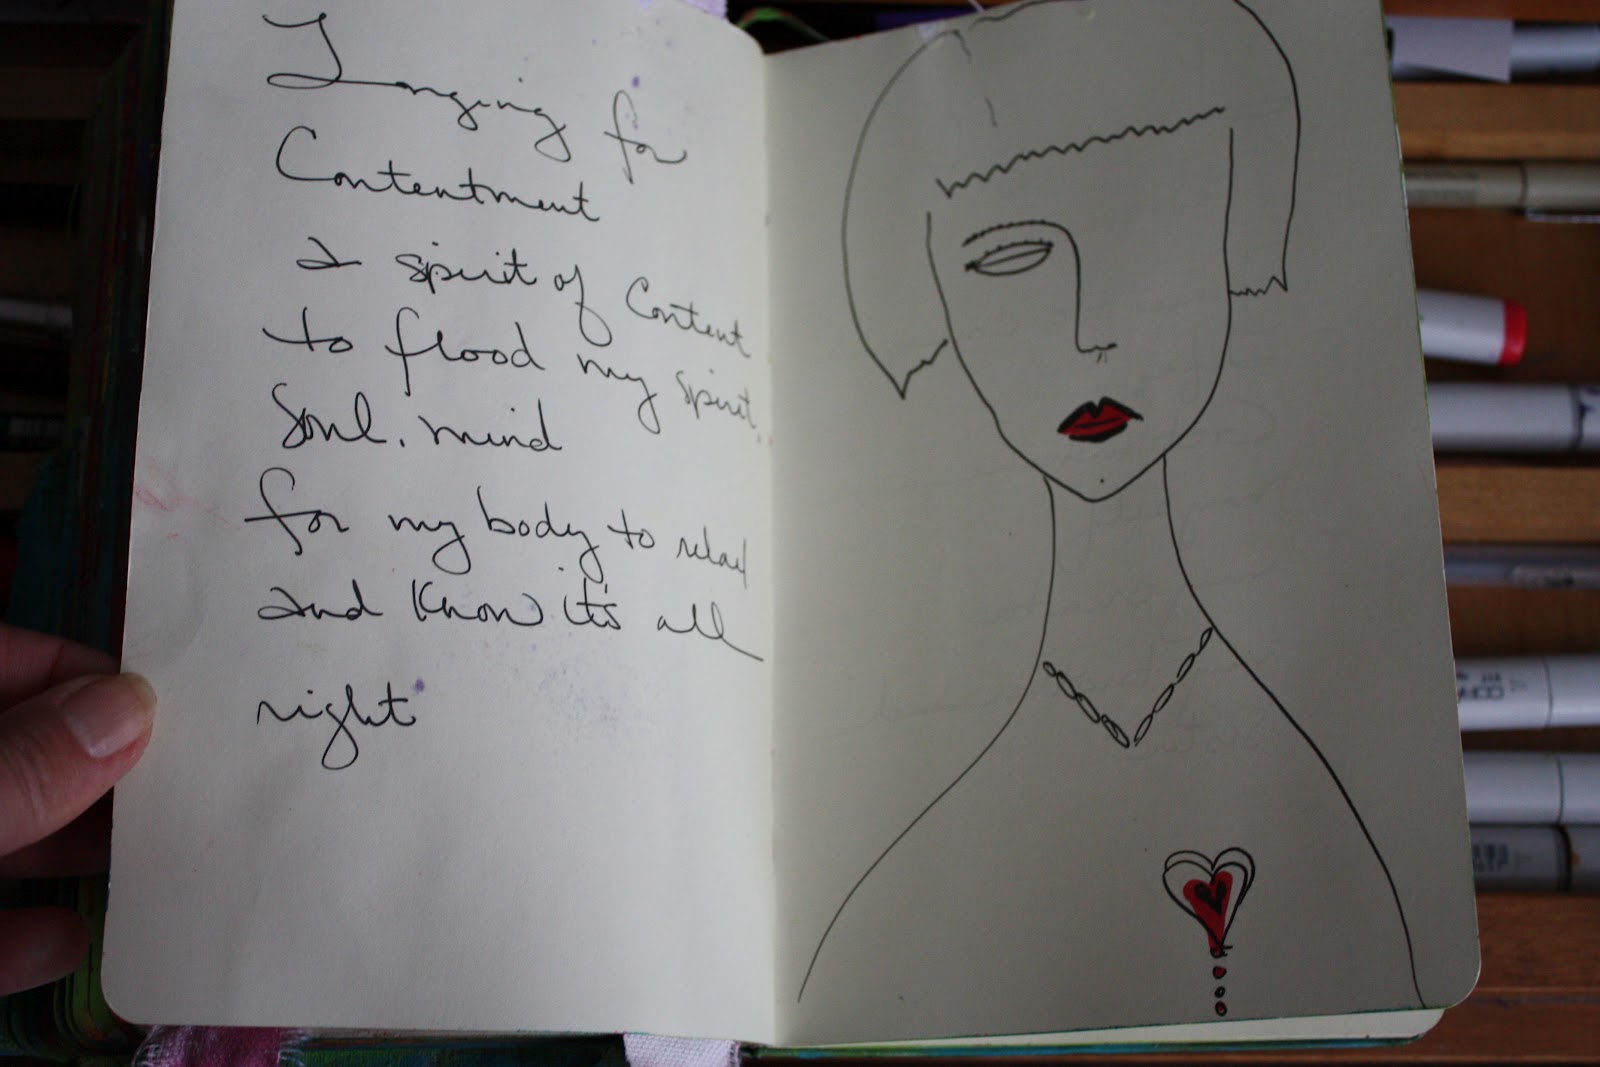 Longing for
Contentment
a spirit of Content
to flood my spirit,
Soul, mind
for my body to relax
and Know it's all
right